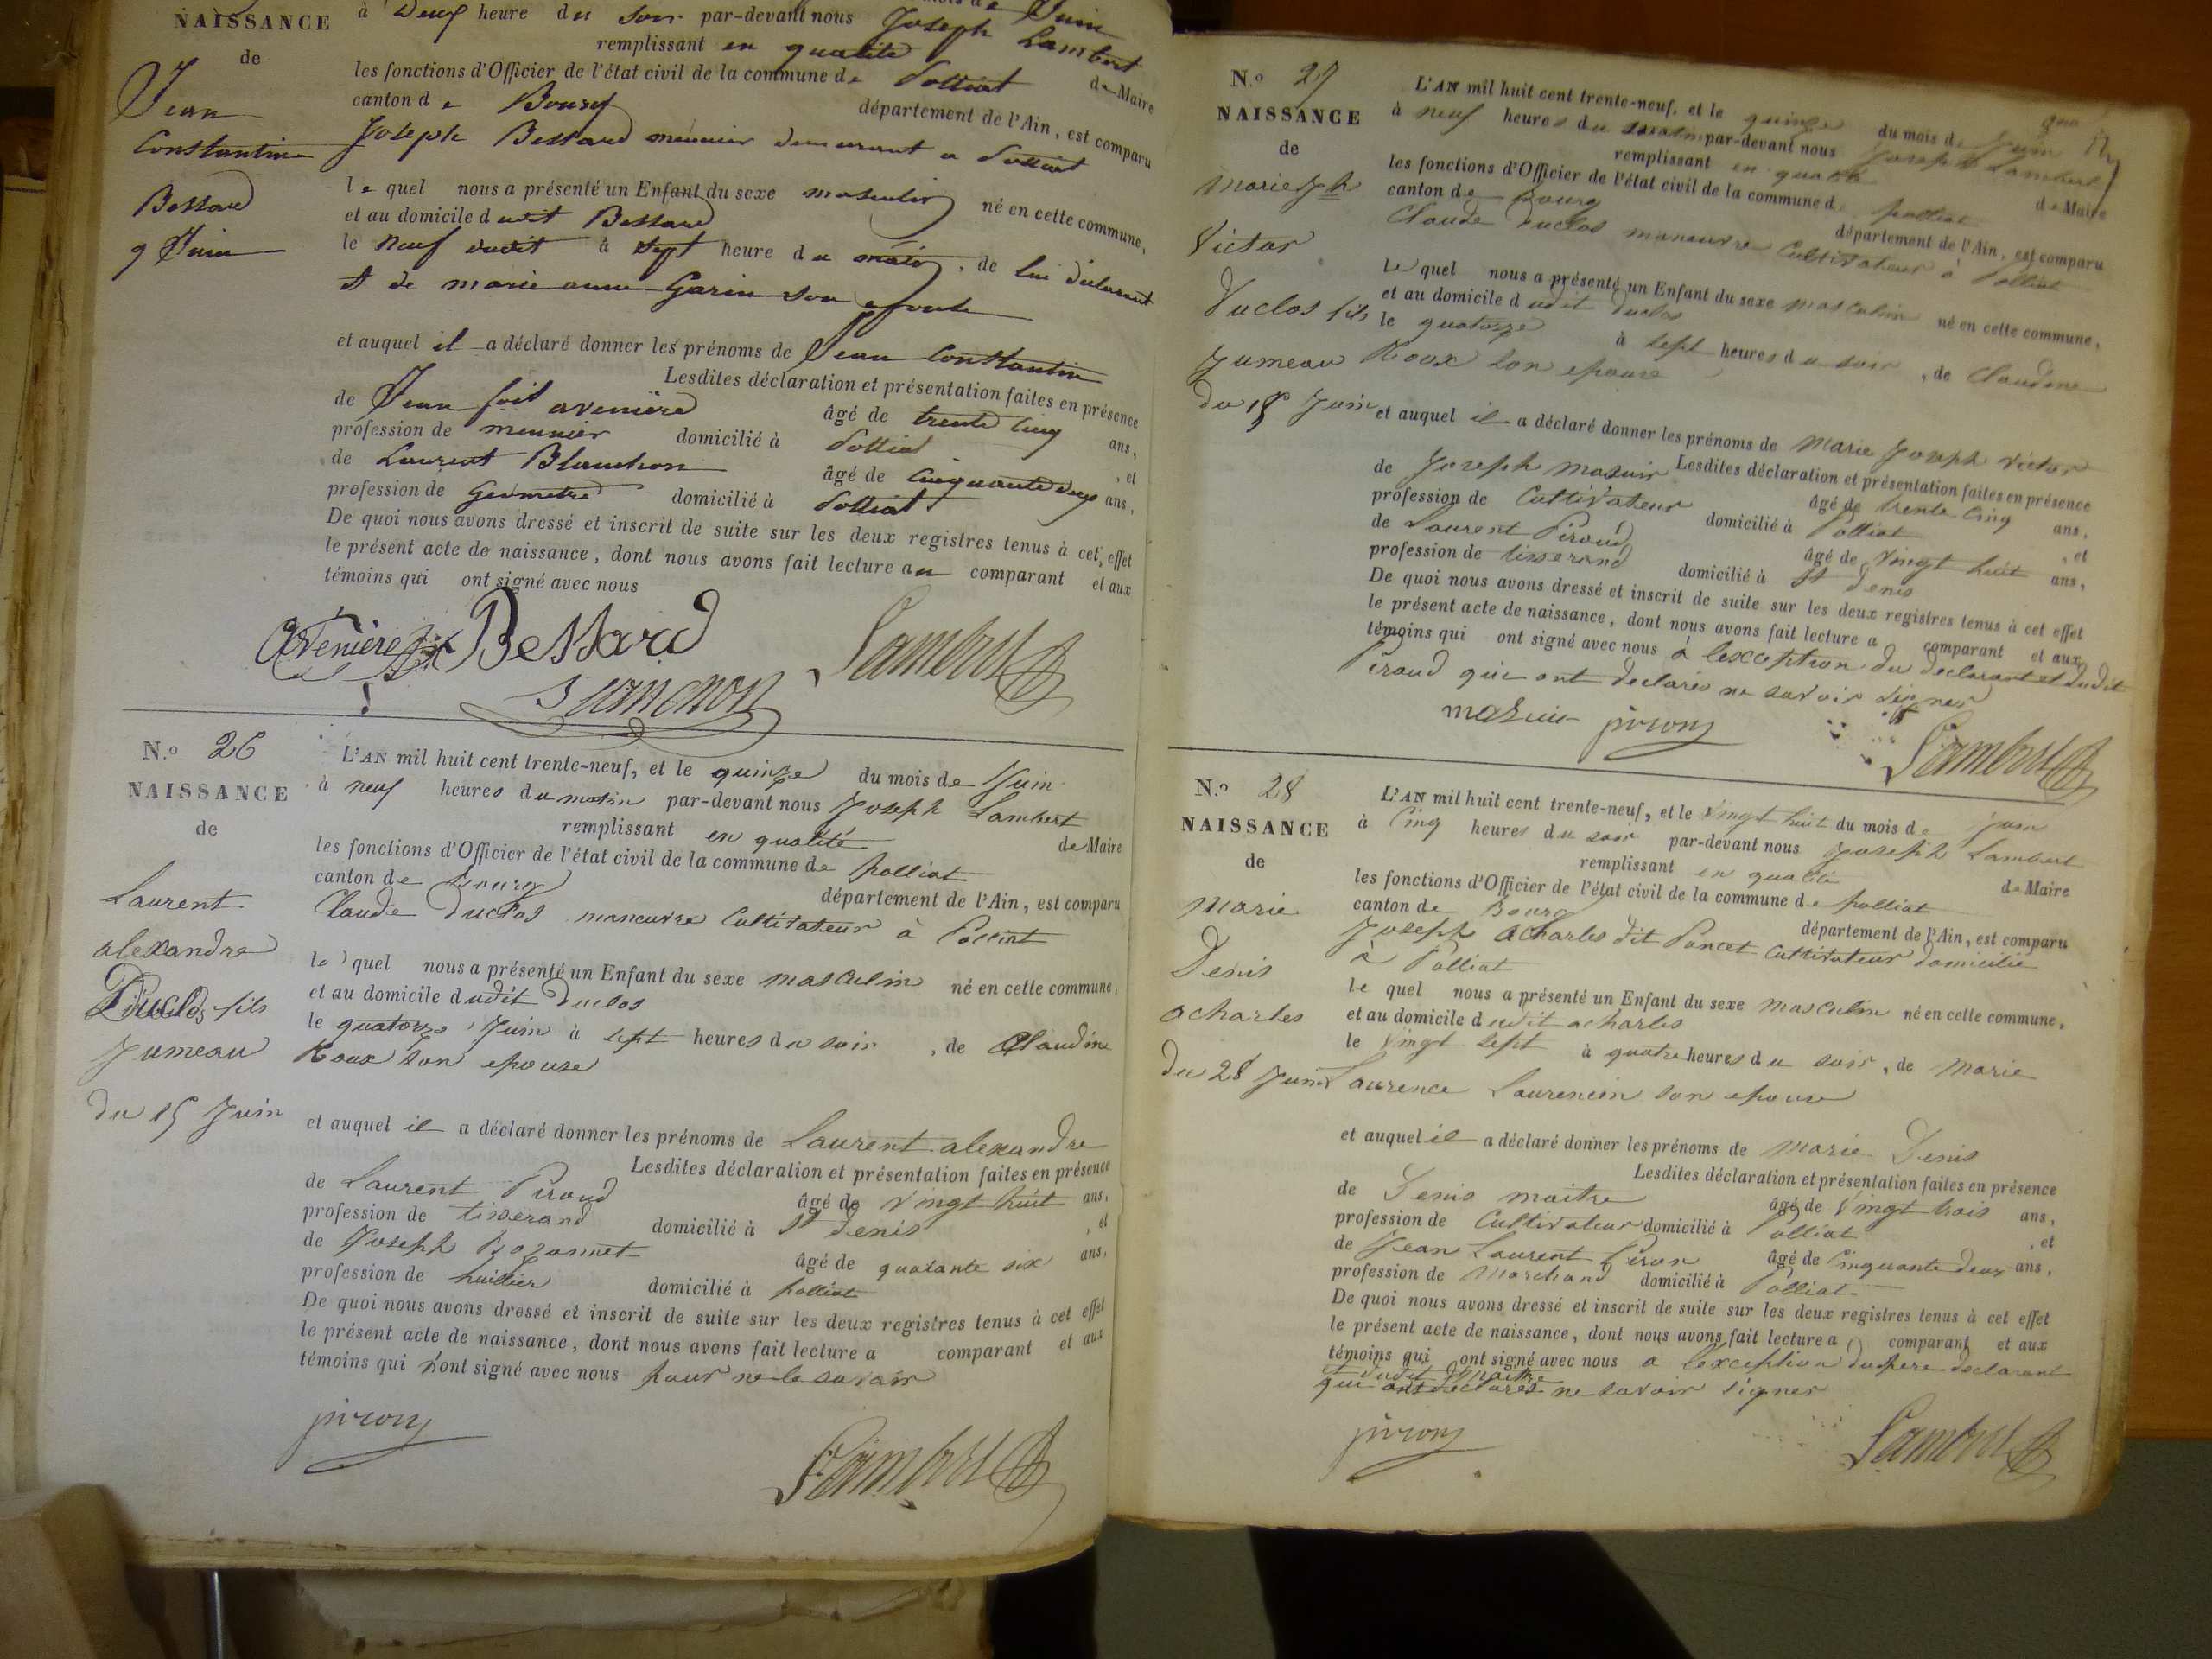 NAISSANCE
de
Jean
Constantin
Bessard
9 Juin
Juin
à Deux heure du soir par-devant nous Joseph Lambert
remplissant en qualité de Maire
les fonctions d'Officier de l'état civil de la commune de Polliat
canton de Bourg département de l'Ain, est comparu
Joseph Bessard meunier demeurant a Polliat
le quel nous a présenté un Enfant du sexe masculin né en cette commune,
et au domicile dudit Bessard
le neuf dudit à sept heure du matin, de lui déclarant
et de marie anne Garin son epouse
et auquel il a déclaré donner les prénoms de Jean Constantin
Lesdites déclaration et présentation faites en présence
de Jean foix avenière âgé de trente cinq ans,
profession de meunier domicilié à Polliat, et
de Laurent Blanchon âgé de cinquante deux ans,
profession de Géometre domicilié à Polliat
De quoi nous avons dressé et inscrit de suite sur les deux registres tenus à cet effet
le présent acte de naissance, dont nous avons fait lecture au comparant et aux
témoins qui ont signé avec nous
Avenière Bessard
Blanchon Lambert
N.o 26
NAISSANCE
de
Laurent
alexandre
Duclos fils
Jumeau
du 15 Juin
L'AN mil huit cent trente-neuf, et le quinze du mois de Juin
à neuf heures du matin par-devant nous Joseph Lambert
remplissant en qualité de Maire
les fonctions d'Officier de l'état civil de la commune de polliat
canton de Bourg département de l'Ain, est comparu
Claude Duclos manouvre Cultivateur à Polliat
le quel nous a présenté un Enfant du sexe masculin né en cette commune,
et au domicile dudit Duclos
le quatorze Juin à sept heures du soir, de Claudine
Roux son epouse
et auquel il a déclaré donner les prénoms de Laurent alexandre
Lesdites déclaration et présentation faites en présence
de Laurent Piroud âgé de vingt huit ans,
profession de tisserand domicilié à St Denis, et
de Joseph Bozonnet âgé de quarante six ans,
profession de huillier domicilié à polliat
De quoi nous avons dressé et inscrit de suite sur les deux registres tenus à cet effet
le présent acte de naissance, dont nous avons fait lecture a comparant et aux
témoins qui n'ont signé avec nous pour ne le savoir
Lambert
N.o 27
NAISSANCE
de
marie jph
Victor
Duclos fils
Jumeau
du 15 Juin
L'AN mil huit cent trente-neuf, et le quinze du mois de Juin
à neuf heures du matin par-devant nous Joseph Lambert
remplissant en qualité de Maire
les fonctions d'Officier de l'état civil de la commune de polliat
canton de Bourg département de l'Ain, est comparu
Claude Duclos manouvre Cultivateur à Polliat
le quel nous a présenté un Enfant du sexe masculin né en cette commune,
et au domicile dudit Duclos
le quatorze à sept heures du soir, de Claudine
Roux son epouse
et auquel il a déclaré donner les prénoms de Marie Joseph Victor
Lesdites déclaration et présentation faites en présence
de Joseph Mazuir âgé de trente cinq ans,
profession de Cultivateur domicilié à Polliat, et
de Laurent Piroud âgé de vingt huit ans,
profession de tisserand domicilié à St Denis
De quoi nous avons dressé et inscrit de suite sur les deux registres tenus à cet effet
le présent acte de naissance, dont nous avons fait lecture a comparant et aux
témoins qui ont signé avec nous à l'exception du declarant et dudit
Piroud qui ont declarés ne savoir signer
mazuir Lambert
N.o 28
NAISSANCE
de
Marie
Denis
acharles
Du 28 Juin
L'AN mil huit cent trente-neuf, et le vingt huit du mois de juin
à cinq heures du soir par-devant nous Joseph Lambert
remplissant en qualité de Maire
les fonctions d'Officier de l'état civil de la commune de polliat
canton de Bourg département de l'Ain, est comparu
Joseph acharles dit Poncet Cultivateur domicilié
à Polliat
le quel nous a présenté un Enfant du sexe masculin né en cette commune,
et au domicile dudit acharles
le vingt sept à quatre heures du soir, de Marie
Laurence Laurencin son epouse
et auquel il a déclaré donner les prénoms de Marie Denis
Lesdites déclaration et présentation faites en présence
de Denis maitre âgé de vingt trois ans,
profession de Cultivateur domicilié à Polliat, et
de Jean Laurent Piron âgé de cinquante deux ans,
profession de Marchand domicilié à Polliat
De quoi nous avons dressé et inscrit de suite sur les deux registres tenus à cet effet
le présent acte de naissance, dont nous avons fait lecture a comparant et aux
témoins qui ont signé avec nous a l'exception du pere declarant
et dudit Maitre
qui ont declarés ne savoir signer
Lambert